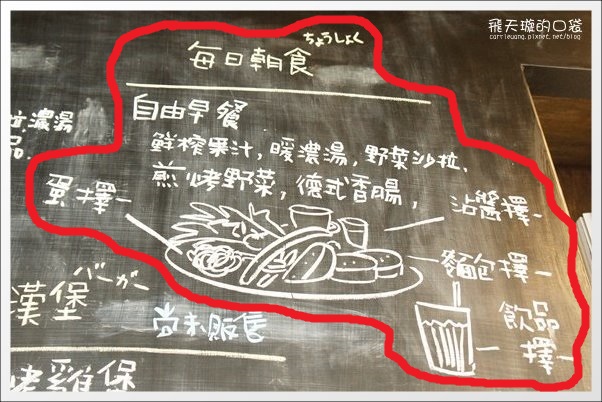 飛天璇的口袋
carriewang.pixnet.net/blog
ちょうしょく
每日朝食
自由早餐
鮮榨果汁,暖濃湯,野菜沙拉,
煎烤野菜,德式香腸,
濃湯
品.
蛋擇一
沾醬擇一
麵包擇一
飲品
擇一
バーガー
漢堡
尚未販售
烤雞堡